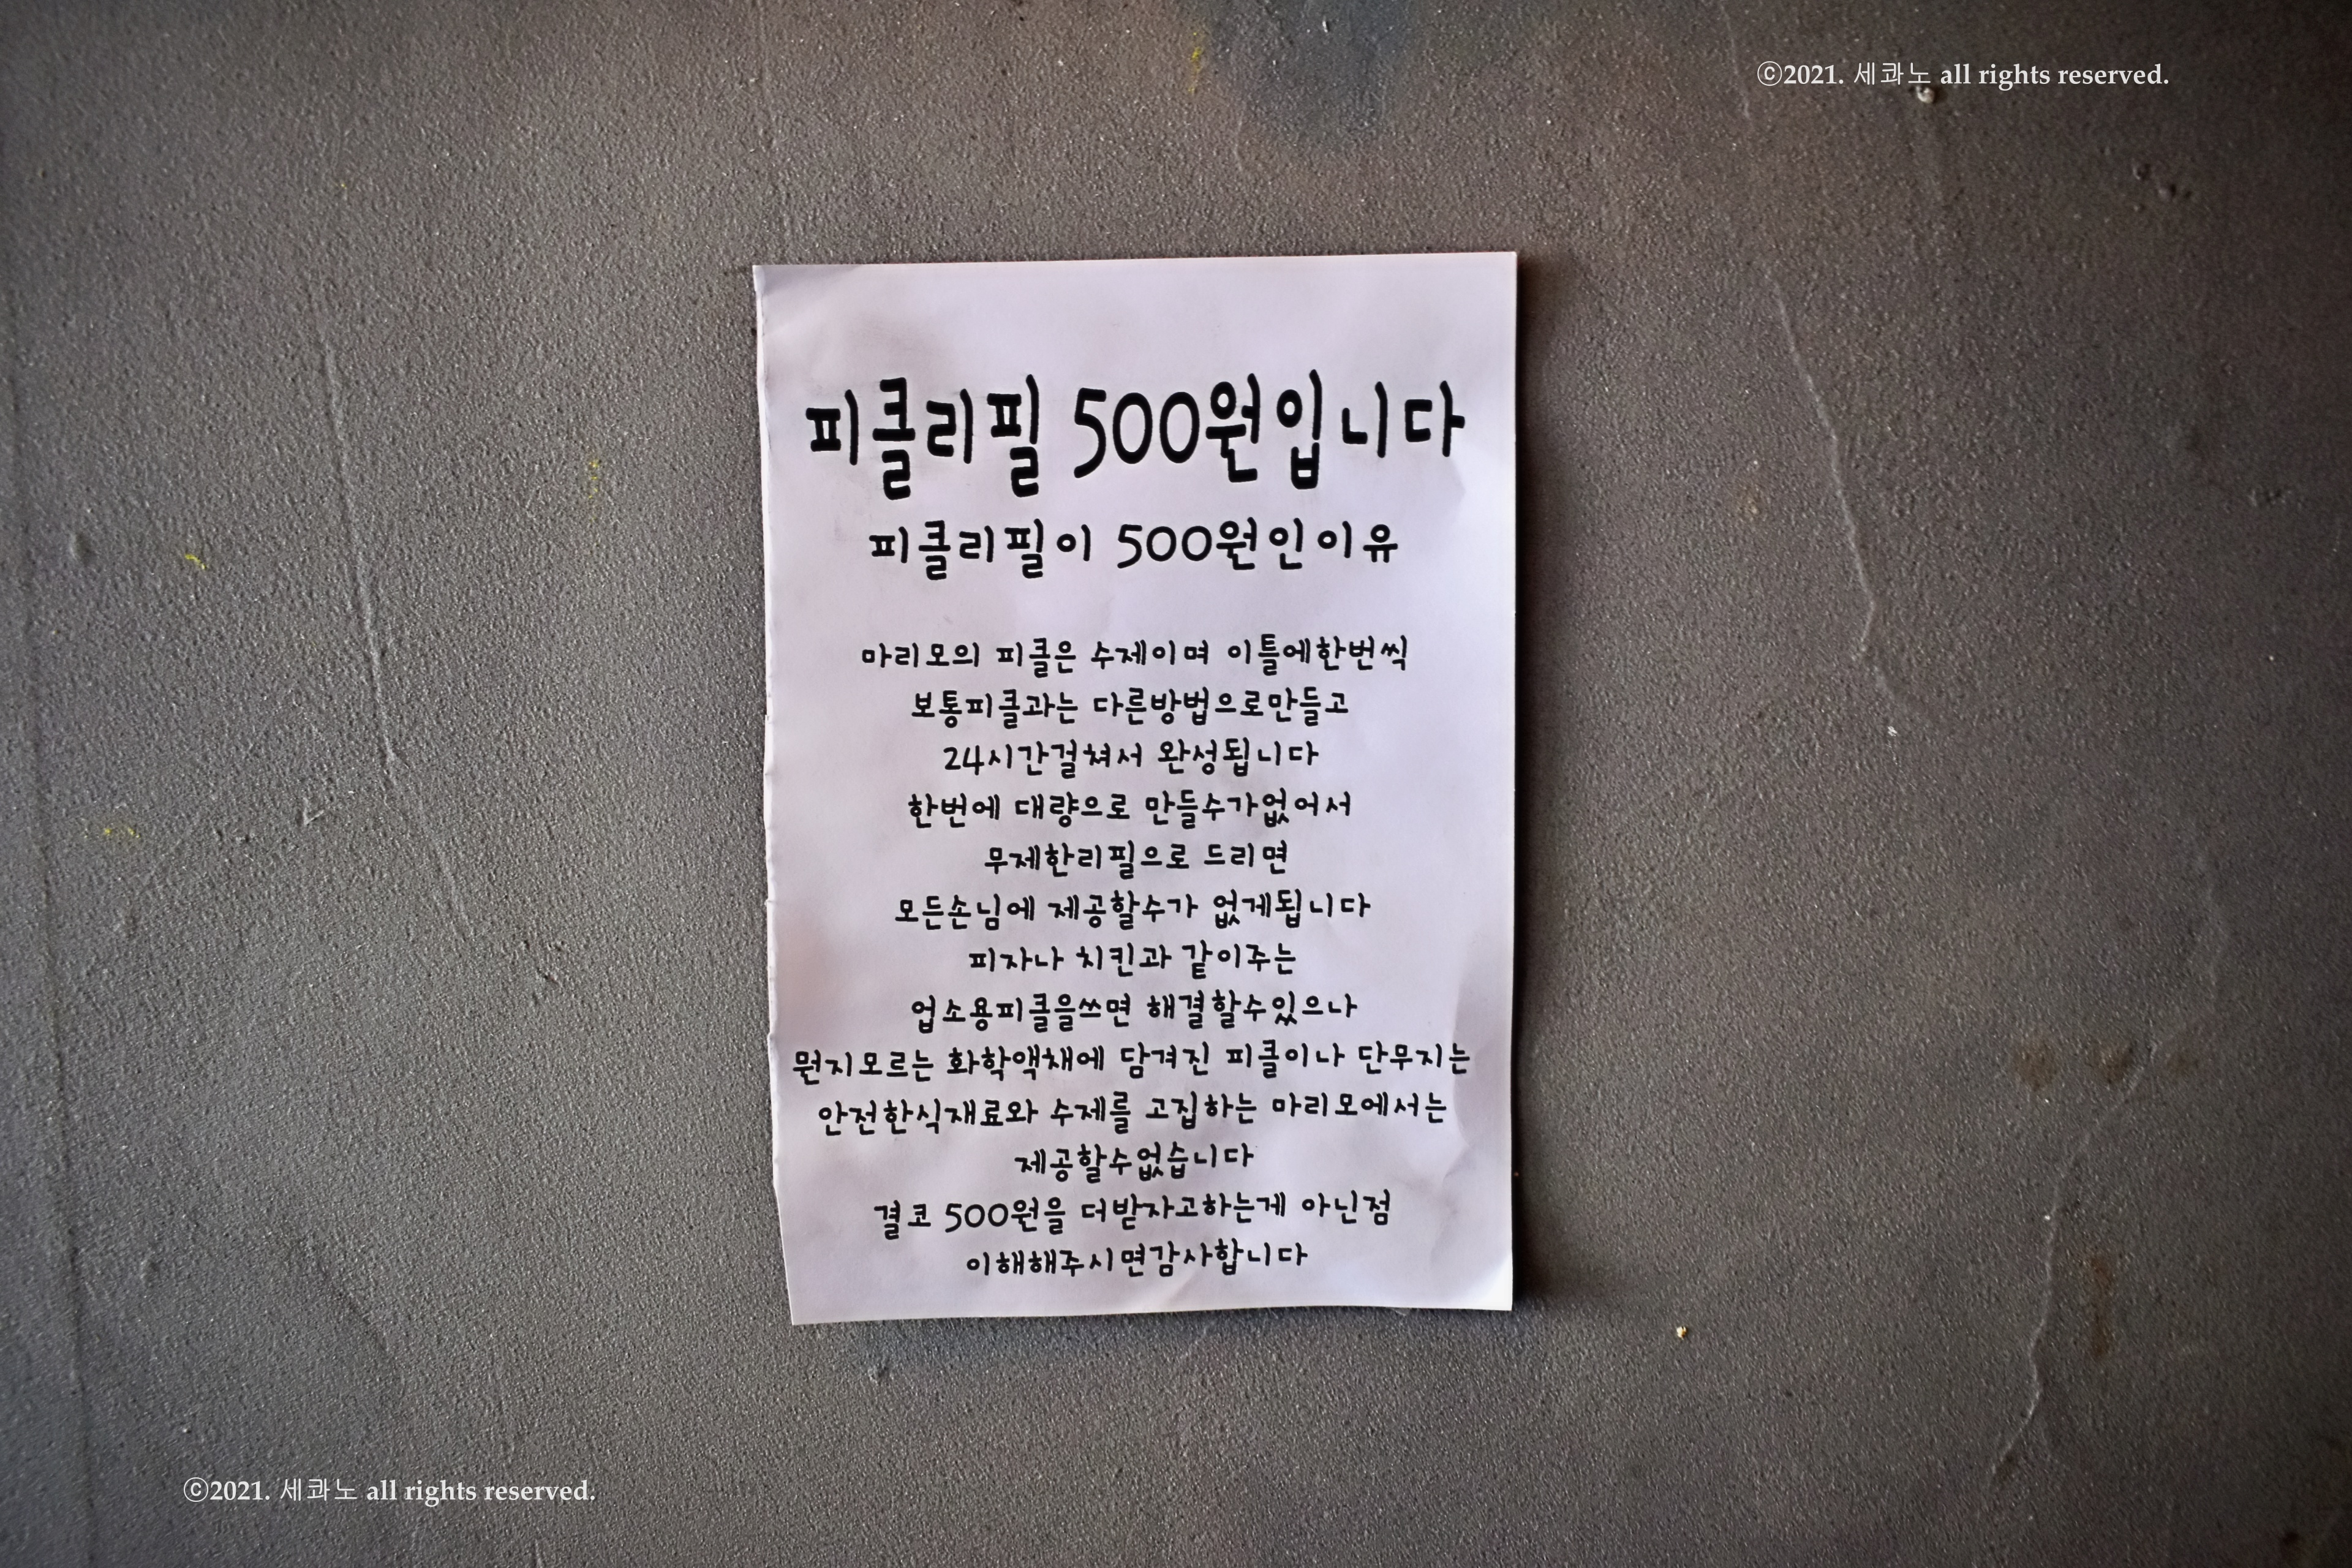 ⓒ2021. 세콰노 all rights reserved.
피클리필 500원입니다
피클리필이 500원인이유
마리모의 피클은 수제이며 이틀에한번씩
보통피클과는 다른방법으로만들고
24시간걸쳐서 완성됩니다
한번에 대량으로 만들수가없어서
무제한리필으로 드리면
모든손님에 제공할수가 없게됩니다
피자나 치킨과 같이주는
업소용피클을쓰면 해결할수있으나
뭔지모르는 화학액채에 담겨진 피클이나 단무지는
안전한식재료와 수제를 고집하는 마리모에서는
제공할수없습니다
결코 500원을 더받자고하는게 아닌점
이해해주시면감사합니다
ⓒ2021. 세콰노 all rights reserved.